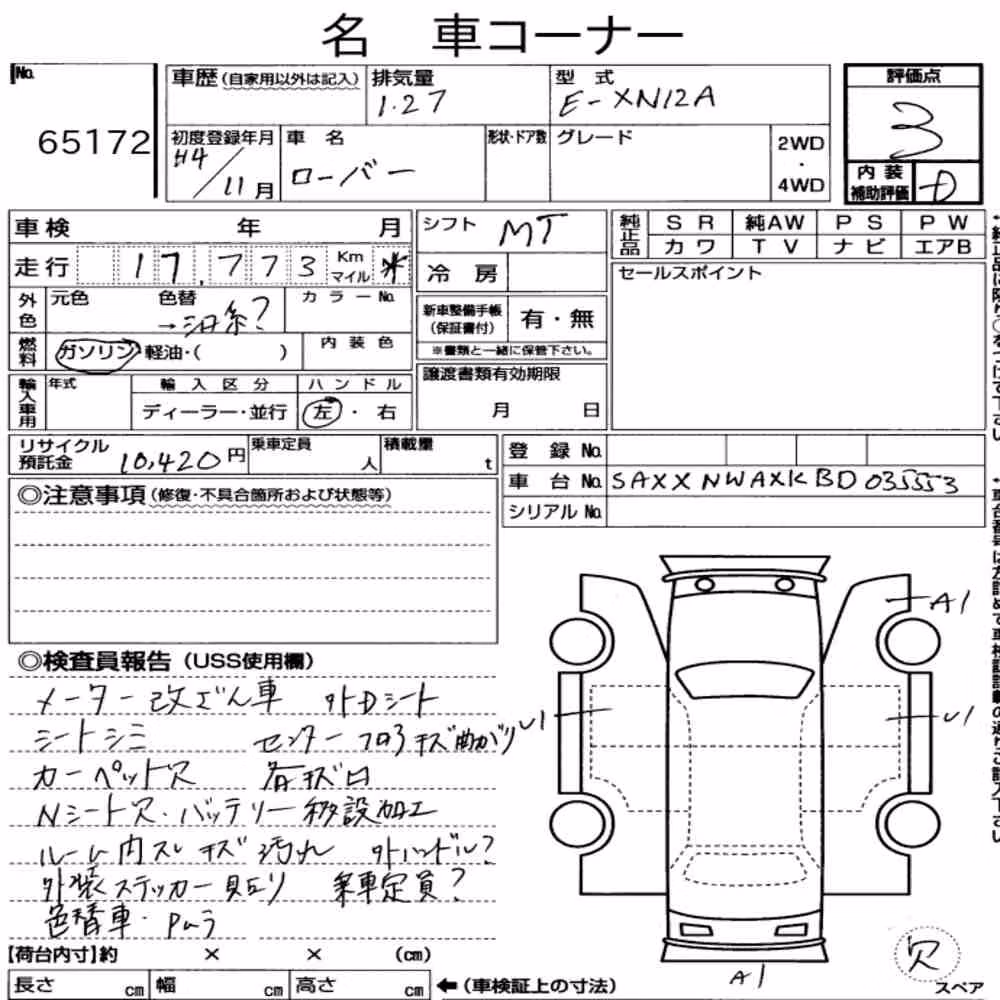 名 車コーナー
No. 65172
車歴 (自家用以外は記入) 排気量 1.27 型 式 E-XN12A
初度登録年月 H4/11月 車 名 ローバー 形状・ドア数 グレード 2WD・4WD
評価点 3
内装補助評価 D
車検 年 月
走行 17,773 Km マイル *
外色 元色 色替 → 緑? カラーNo.
燃料 ガソリン・軽油・( ) 内装色
輸入車用 年式 輸入区分 ハンドル
ディーラー・並行 左・右
シフト MT
冷 房
新車整備手帳(保証書付) 有・無
※書類と一緒に保管下さい。
譲渡書類有効期限
月 日
純正品 SR 純AW PS PW
カワ TV ナビ エアB
セールスポイント
リサイクル預託金 10,420円 乗車定員 人 積載量 t
登 録 No.
車 台 No. SAXXNWAXKBD035553
シリアル No.
◎注意事項 (修復・不具合箇所および状態等)
◎検査員報告 (USS使用欄)
メーター改ざん車 外Dシート
シートシミ センターフロアキズ曲がり
カーペット穴 各キズ凹
Nシート穴・バッテリー移設加工
ルーム内スレキズ汚れ 外ハンドル?
外装ステッカー貼り 乗車定員?
色替車・Pムラ
A1
U1
U1
A1
欠
スペア
【荷台内寸】約 × × (cm)
長さ cm 幅 cm 高さ cm ←(車検証上の寸法)